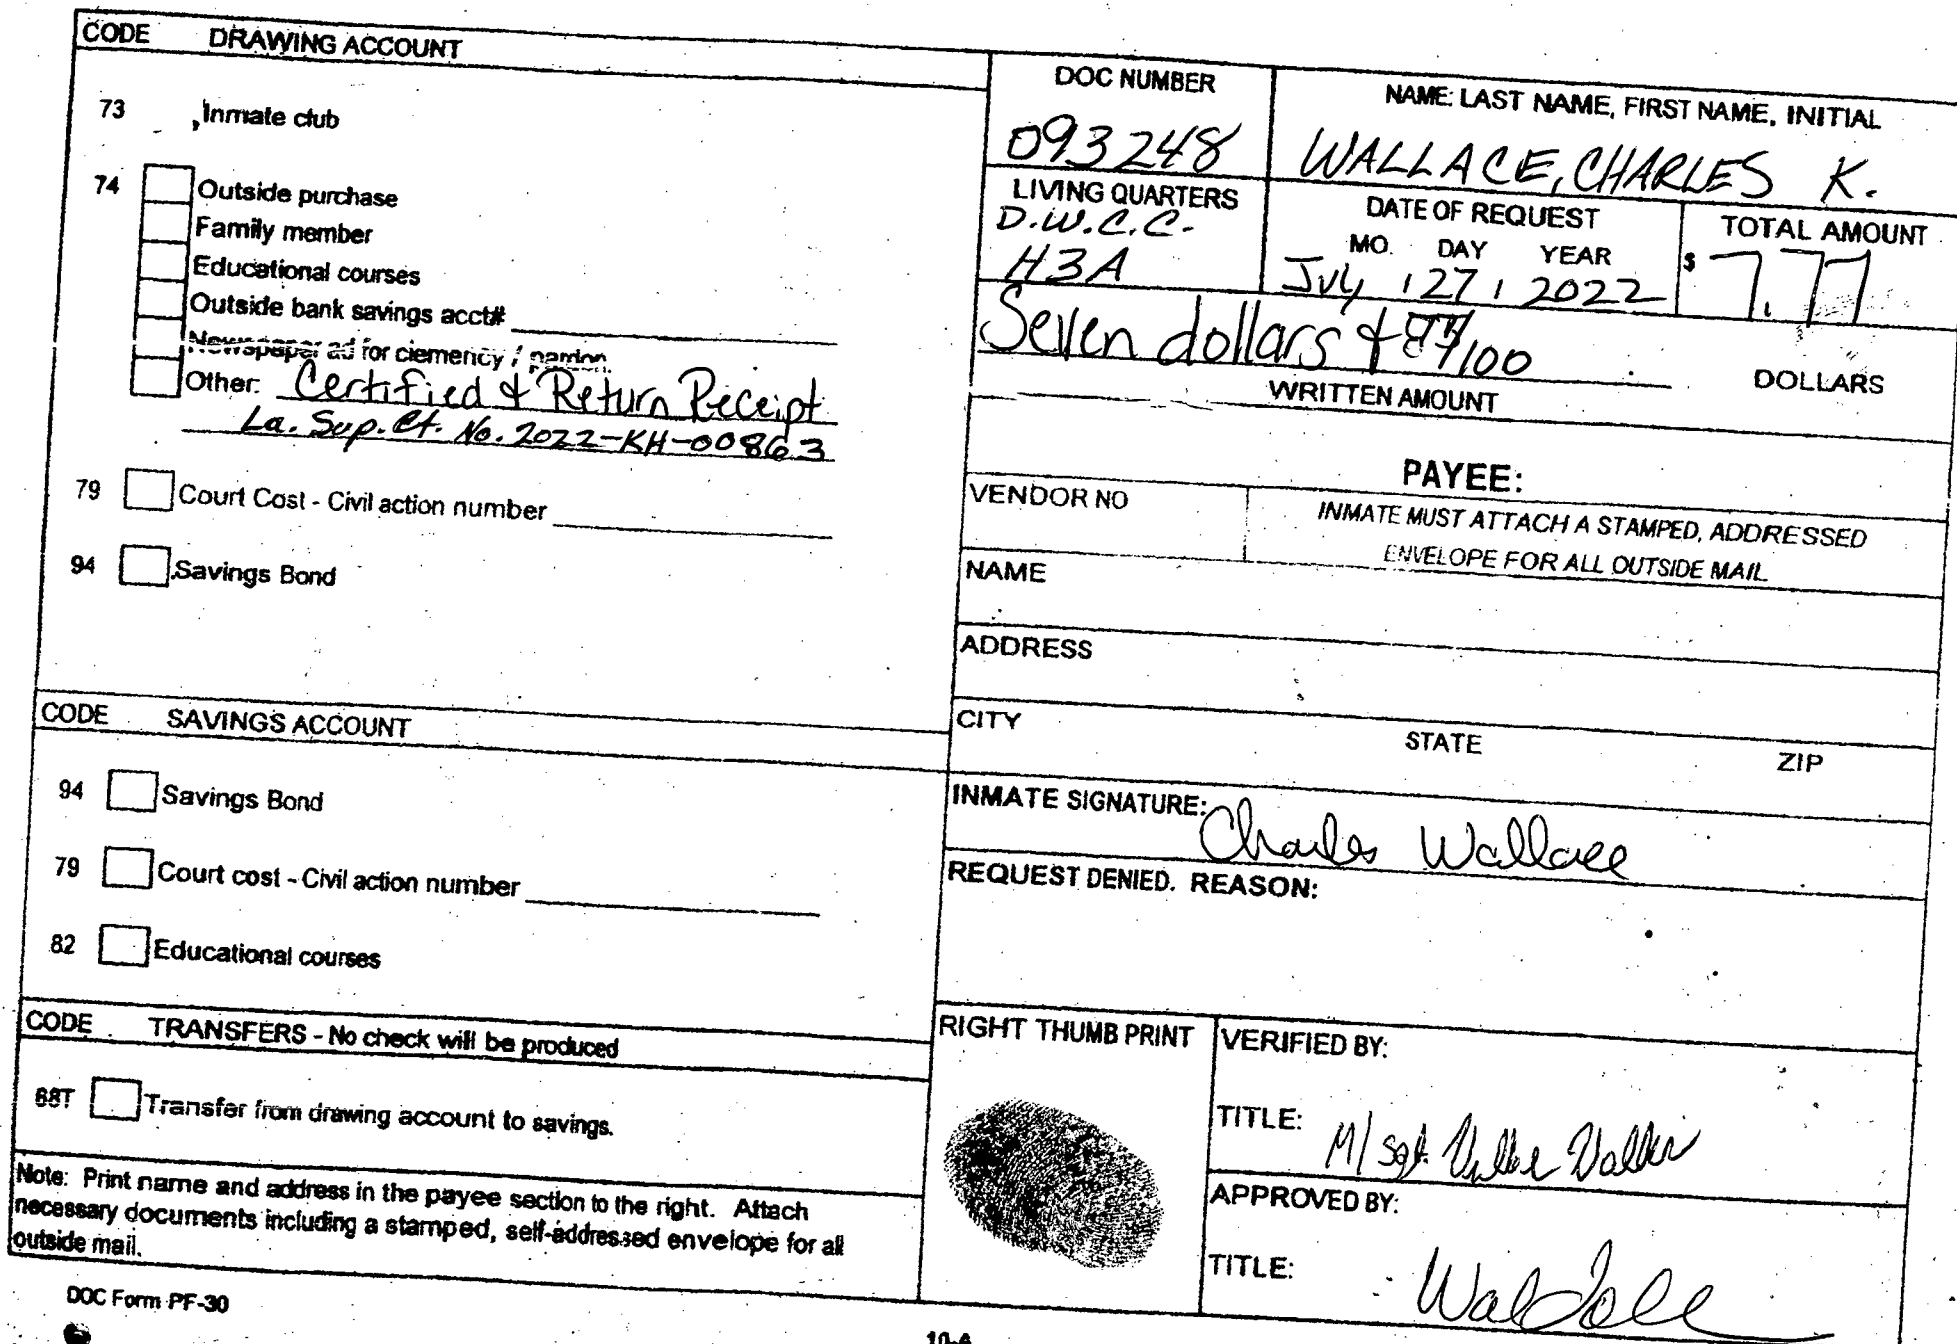 CODE DRAWING ACCOUNT
73 Inmate club
74 Outside purchase
Family member
Educational courses
Outside bank savings acct#
Newspaper ad for clemency / pardon.
Other: Certified & Return Receipt
La. Sup. Ct. No. 2022-KH-00863
79 Court Cost - Civil action number
94 Savings Bond
CODE SAVINGS ACCOUNT
94 Savings Bond
79 Court cost - Civil action number
82 Educational courses
CODE TRANSFERS - No check will be produced
68T Transfer from drawing account to savings.
Note: Print name and address in the payee section to the right. Attach
necessary documents including a stamped, self-addressed envelope for all
outside mail.
DOC Form PF-30
DOC NUMBER
093248
NAME: LAST NAME, FIRST NAME, INITIAL
WALLACE, CHARLES K.
LIVING QUARTERS
D.W.C.C.
H3A
DATE OF REQUEST
MO. DAY YEAR
July 27, 2022
TOTAL AMOUNT
$ 7.77
Seven dollars & /100
DOLLARS
WRITTEN AMOUNT
PAYEE:
VENDOR NO
INMATE MUST ATTACH A STAMPED, ADDRESSED
ENVELOPE FOR ALL OUTSIDE MAIL
NAME
ADDRESS
CITY STATE ZIP
INMATE SIGNATURE: Charles Wallace
REQUEST DENIED. REASON:
RIGHT THUMB PRINT
VERIFIED BY:
TITLE: M/Sgt.
APPROVED BY:
TITLE:
10-A